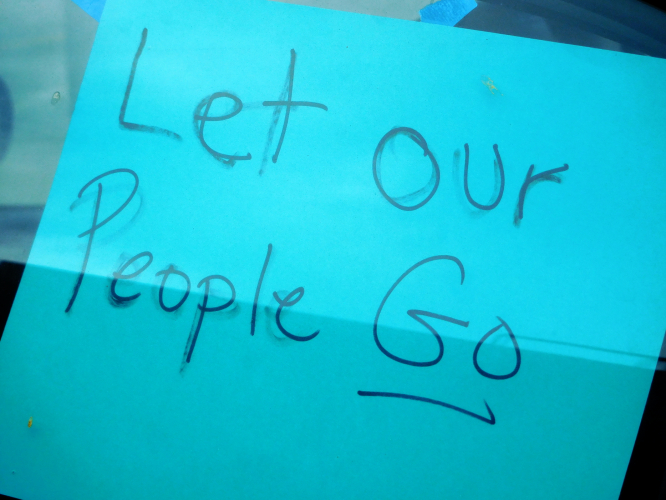 Let our
People Go